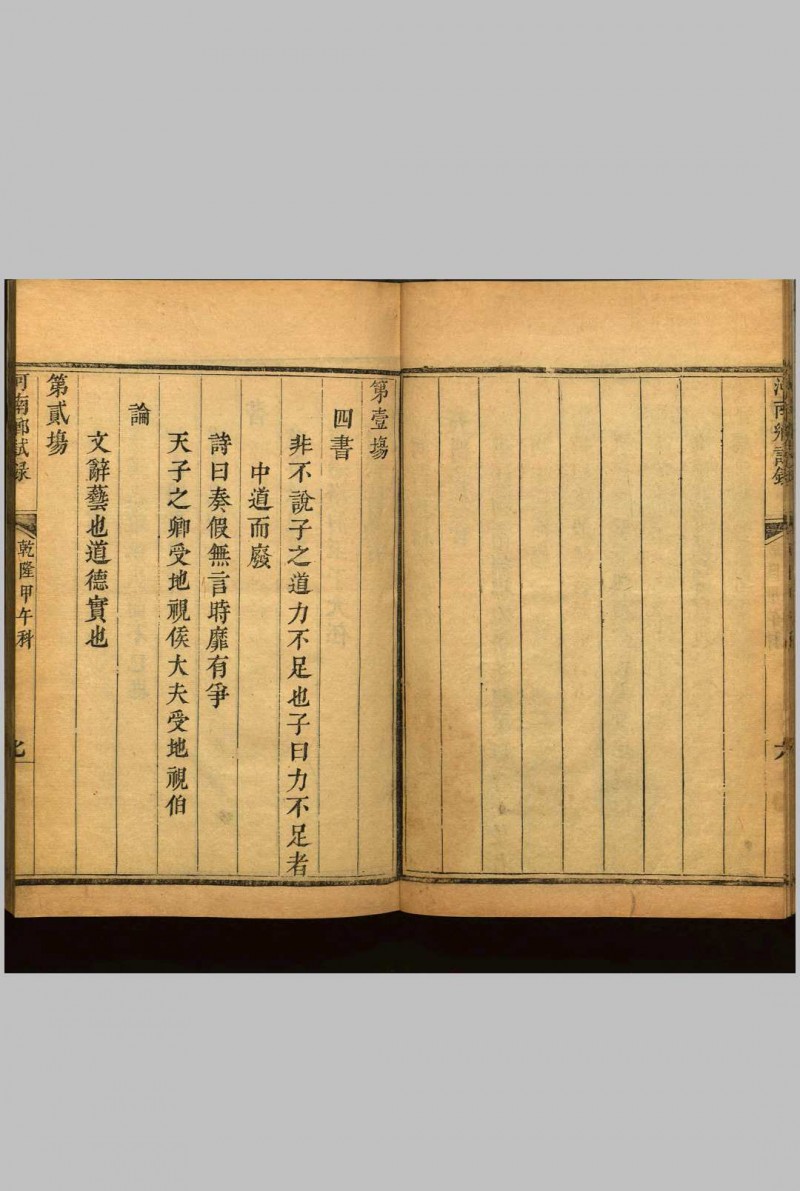 河南鄉試錄
六
第壹塲
四書
非不說子之道力不足也子曰力不足者
中道而廢
詩曰奏假無言時靡有爭
天子之卿受地視侯大夫受地視伯
論
文辭藝也道德實也
第貳塲
河南鄉試錄
乾隆甲午科
七